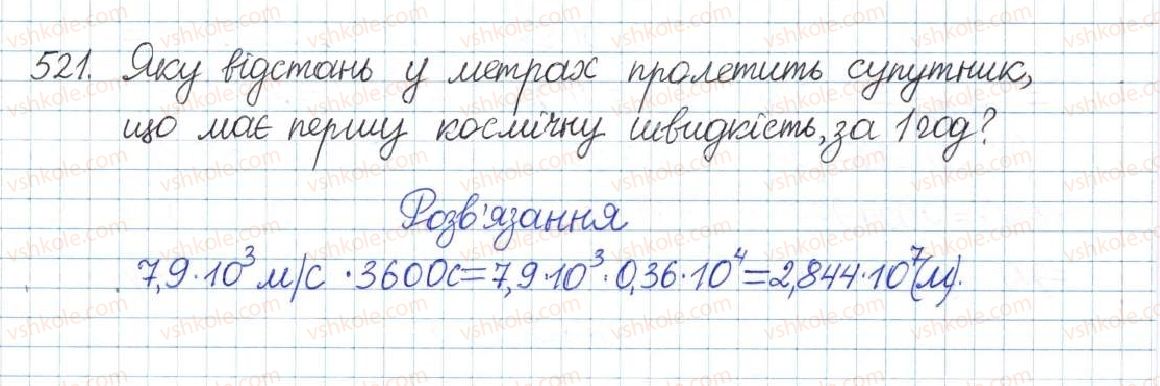 521. Яку відстань у метрах пролетить супутник,
що має першу космічну швидкість, за 1 год?
Розв'язання
7,9·10³ м/с ·3600с=7,9·10³·0,36·10⁴=2,844·10⁷(м).